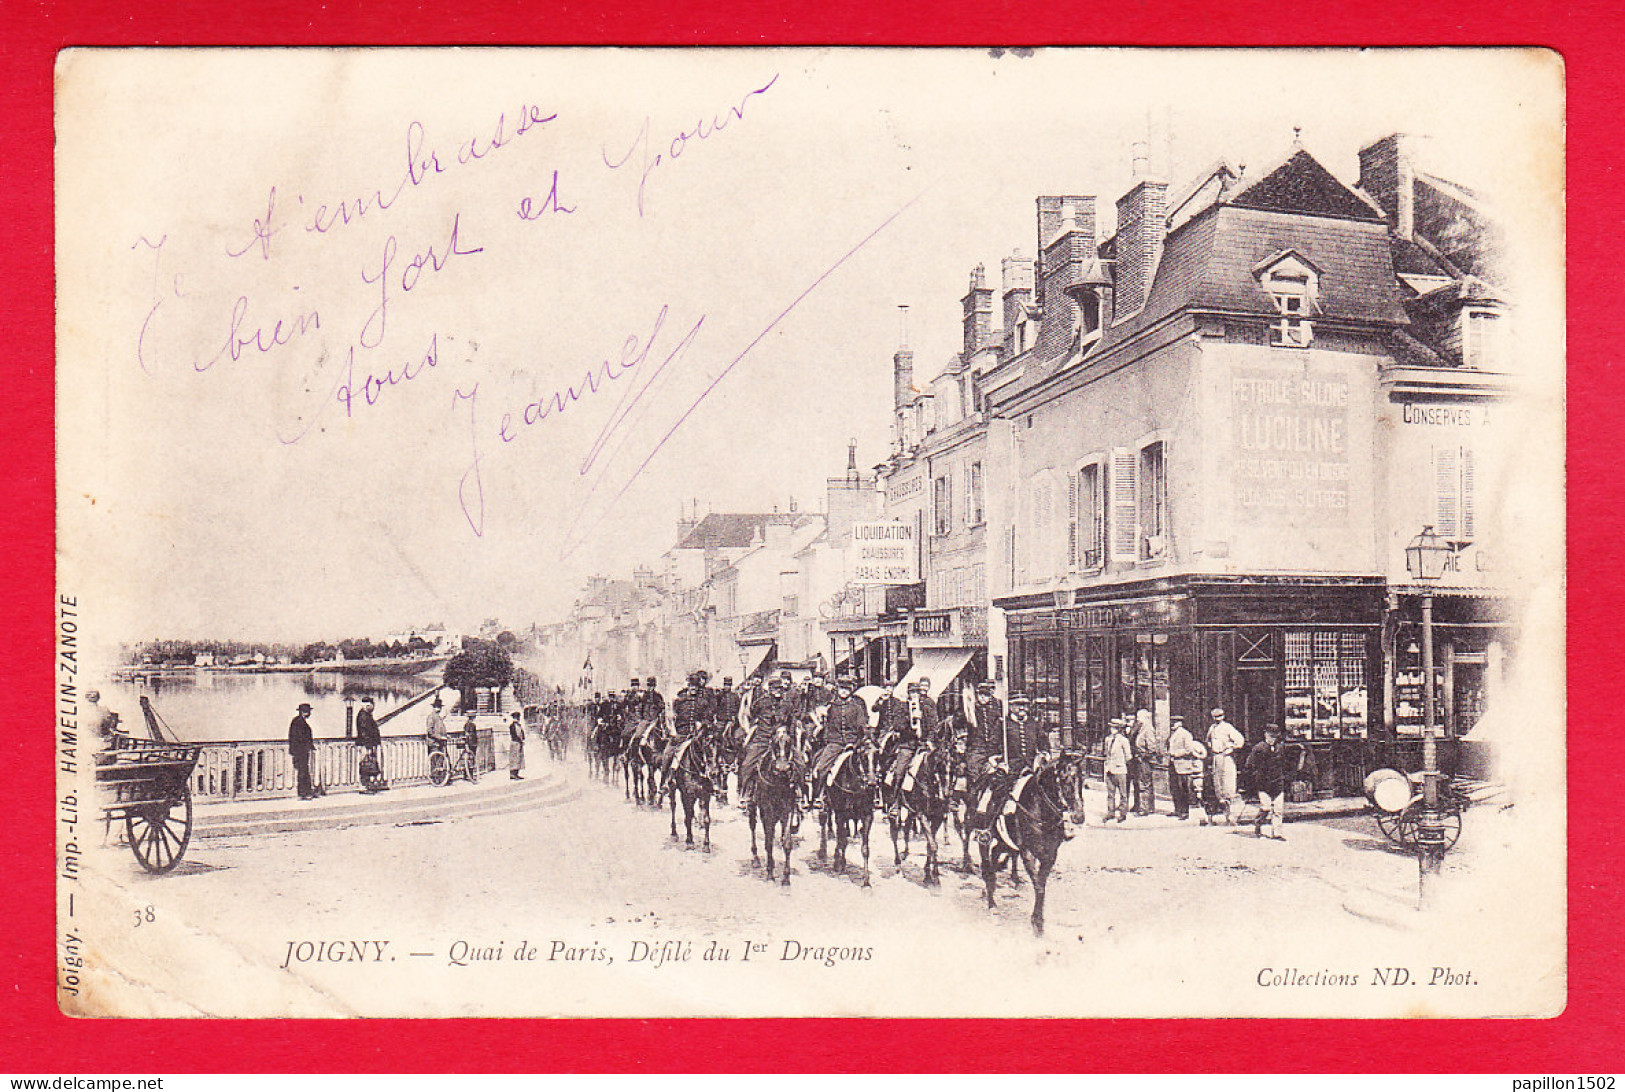 Je t'embrasse
bien fort et pour
tous
Jeanne
PETROLE - SALONS
LUCILINE
CONSERVES A
CHAUSSURES
LIQUIDATION
CHAUSSURES
RABAIS ENORME
PIERRE
Joigny. — Imp.-Lib. HAMELIN-ZANOTE
38
JOIGNY. — Quai de Paris, Défilé du 1er Dragons
Collections ND. Phot.
www.delcampe.net
papillon1502